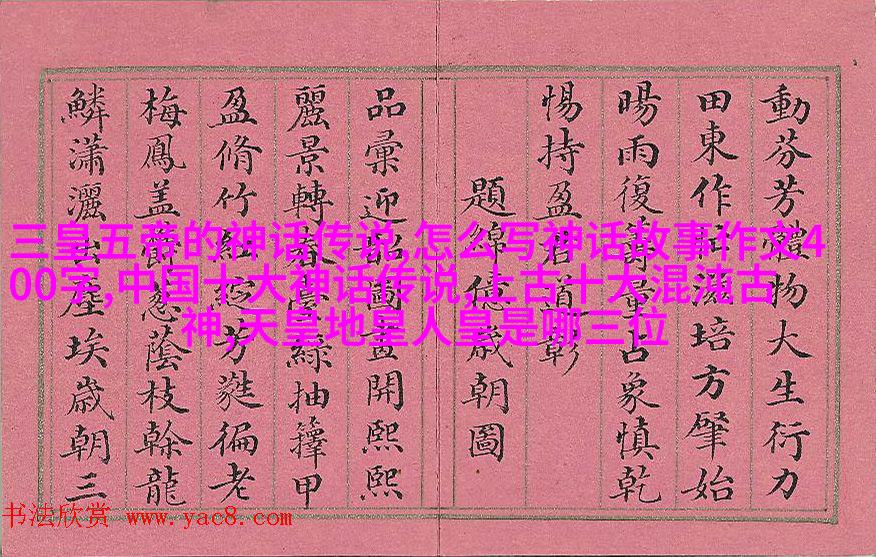 動芬芳體物大生衍力
田東作滋培方肇始
暘雨復籌量占象慎乾
惕持盈君道彰
題綿億歲朝圖
品彙迎韶圖畫開熙熙
麗景轉春臺綠抽籜甲
盈脩竹紅綻芳蕤徧老
梅鳳蓋蔥蔭枝榦龍
鱗瀟灑出塵埃歲朝三
三皇五帝的神话传说,怎么写神话故事作文4
00字,中国十大神话传说,上古十大混沌古
神,天皇地皇人皇是哪三位
书法欣赏 www.yac8.com